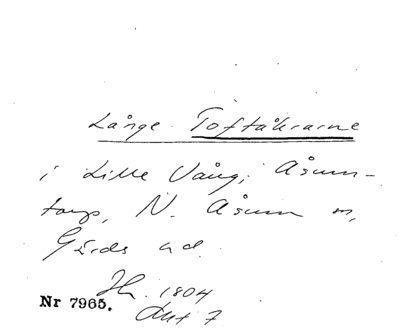 Långe Toftåkrarne
i Lille Vång, Åsum-
torp, N. Åsum sn,
Gärds hd.
Nr 7965. 1804
Akt 7